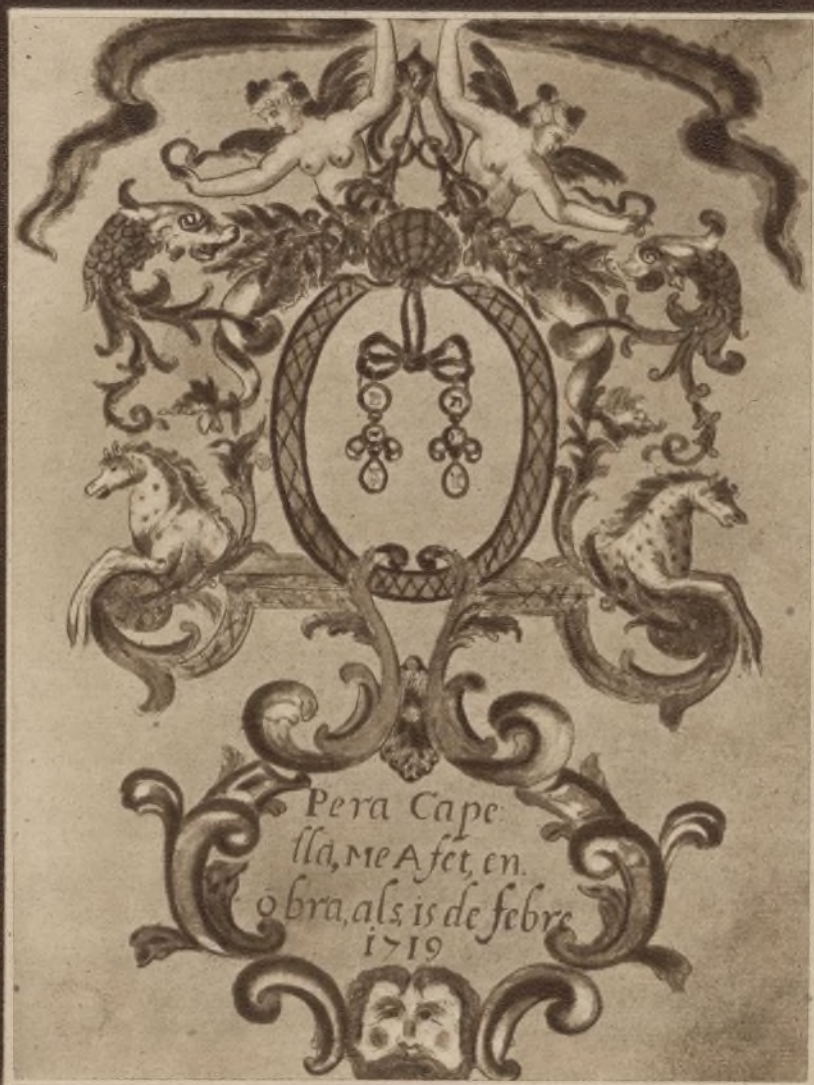 Pera Cape
lla, Me A fet, en.
obra, als, is de febre
1719